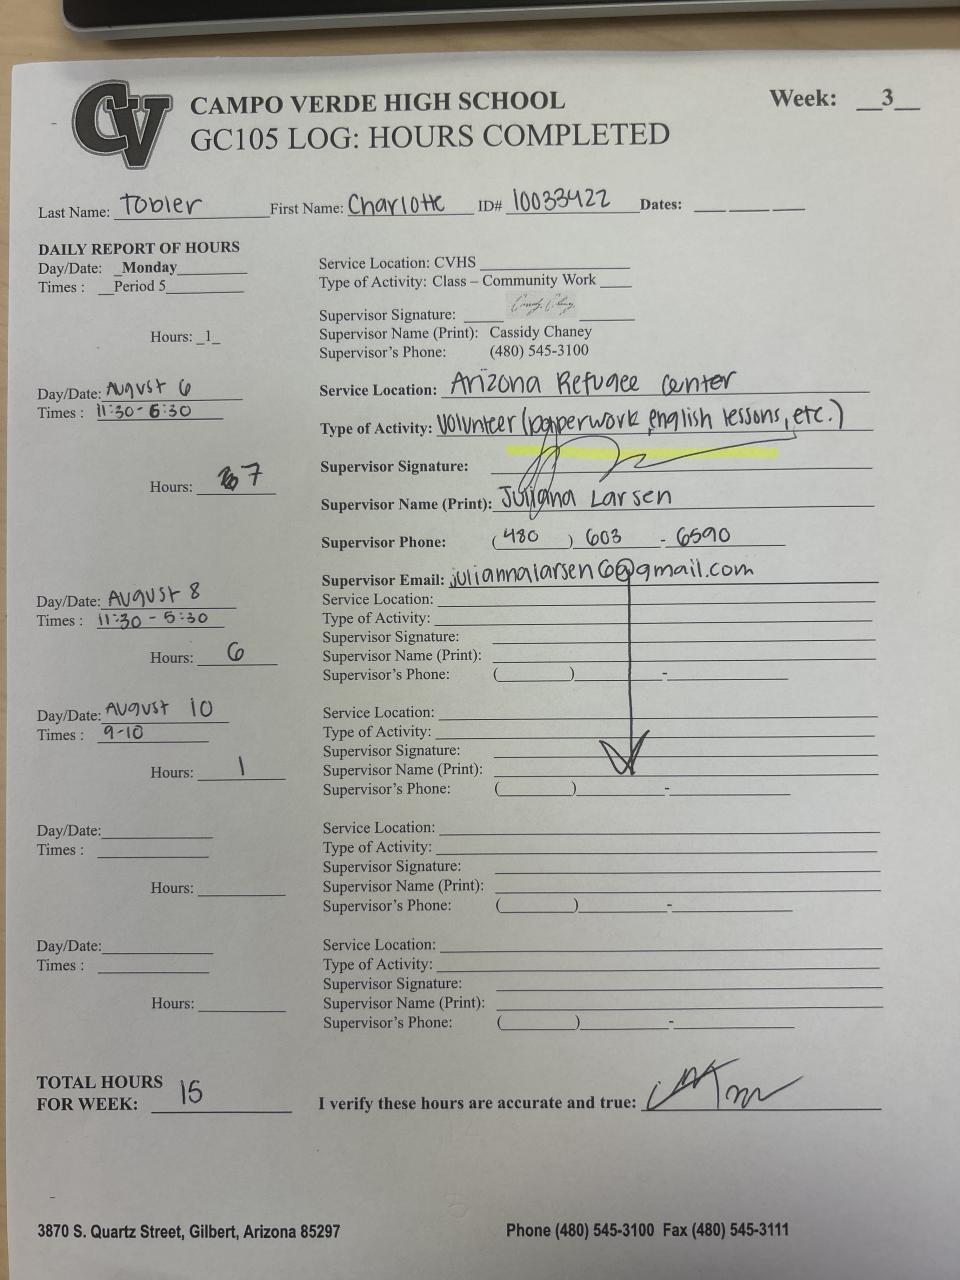 CV
CAMPO VERDE HIGH SCHOOL
Week: __3__
GC105 LOG: HOURS COMPLETED
Last Name: Tobler First Name: Charlotte ID# 10033422 Dates: ___ ___ ___
DAILY REPORT OF HOURS
Day/Date: _Monday_______
Times : __Period 5________
Hours: _1_
Service Location: CVHS ____________________
Type of Activity: Class – Community Work ____
Supervisor Signature: 
Supervisor Name (Print): Cassidy Chaney
Supervisor's Phone: (480) 545-3100
Day/Date: August 6
Times : 11:30-6:30
Hours: 7
Service Location: Arizona Refugee center
Type of Activity: Volunteer (paperwork, english lessons, etc.)
Supervisor Signature:
Supervisor Name (Print): Juliana Larsen
Supervisor Phone: (480) 603 - 6590
Supervisor Email: juliannalarsen6@gmail.com
Day/Date: August 8
Times : 11:30 - 5:30
Hours: 6
Service Location:
Type of Activity:
Supervisor Signature:
Supervisor Name (Print):
Supervisor's Phone: ( ) -
Day/Date: August 10
Times : 9-10
Hours: 1
Service Location:
Type of Activity:
Supervisor Signature:
Supervisor Name (Print):
Supervisor's Phone: ( ) -
Day/Date:
Times :
Hours:
Service Location:
Type of Activity:
Supervisor Signature:
Supervisor Name (Print):
Supervisor's Phone: ( ) -
Day/Date:
Times :
Hours:
Service Location:
Type of Activity:
Supervisor Signature:
Supervisor Name (Print):
Supervisor's Phone: ( ) -
TOTAL HOURS
FOR WEEK: 15
I verify these hours are accurate and true:
3870 S. Quartz Street, Gilbert, Arizona 85297
Phone (480) 545-3100 Fax (480) 545-3111